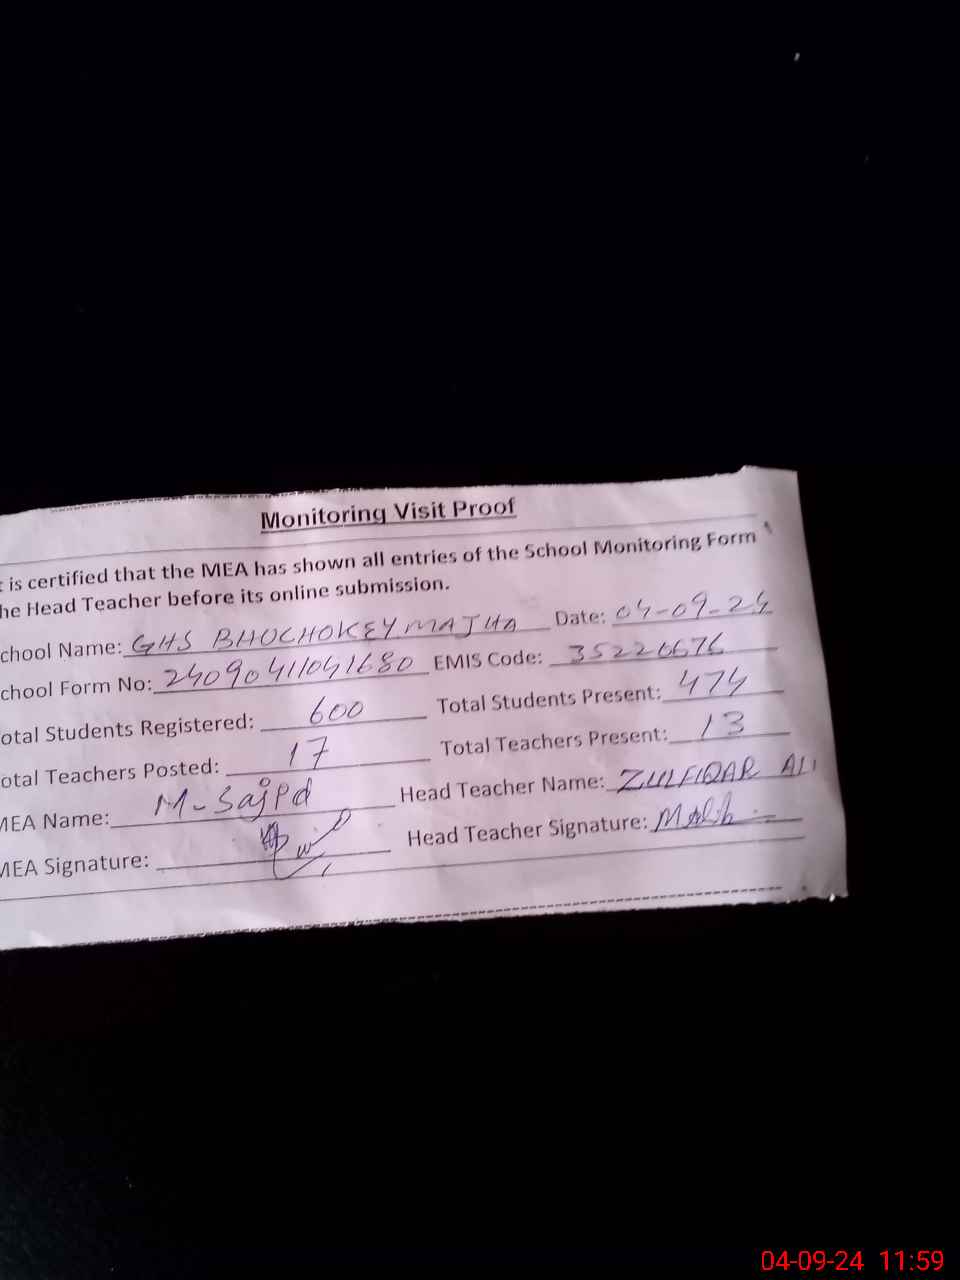 Monitoring Visit Proof
t is certified that the MEA has shown all entries of the School Monitoring Form
he Head Teacher before its online submission.
chool Name: GHS BHUCHOKEY MAJHA Date: 04-09-24
chool Form No: 24090411041680 EMIS Code: 35220676
otal Students Registered: 600 Total Students Present: 474
otal Teachers Posted: 17 Total Teachers Present: 13
MEA Name: M-Sajid Head Teacher Name: ZULFIQAR ALI
MEA Signature: Head Teacher Signature:
04-09-24 11:59